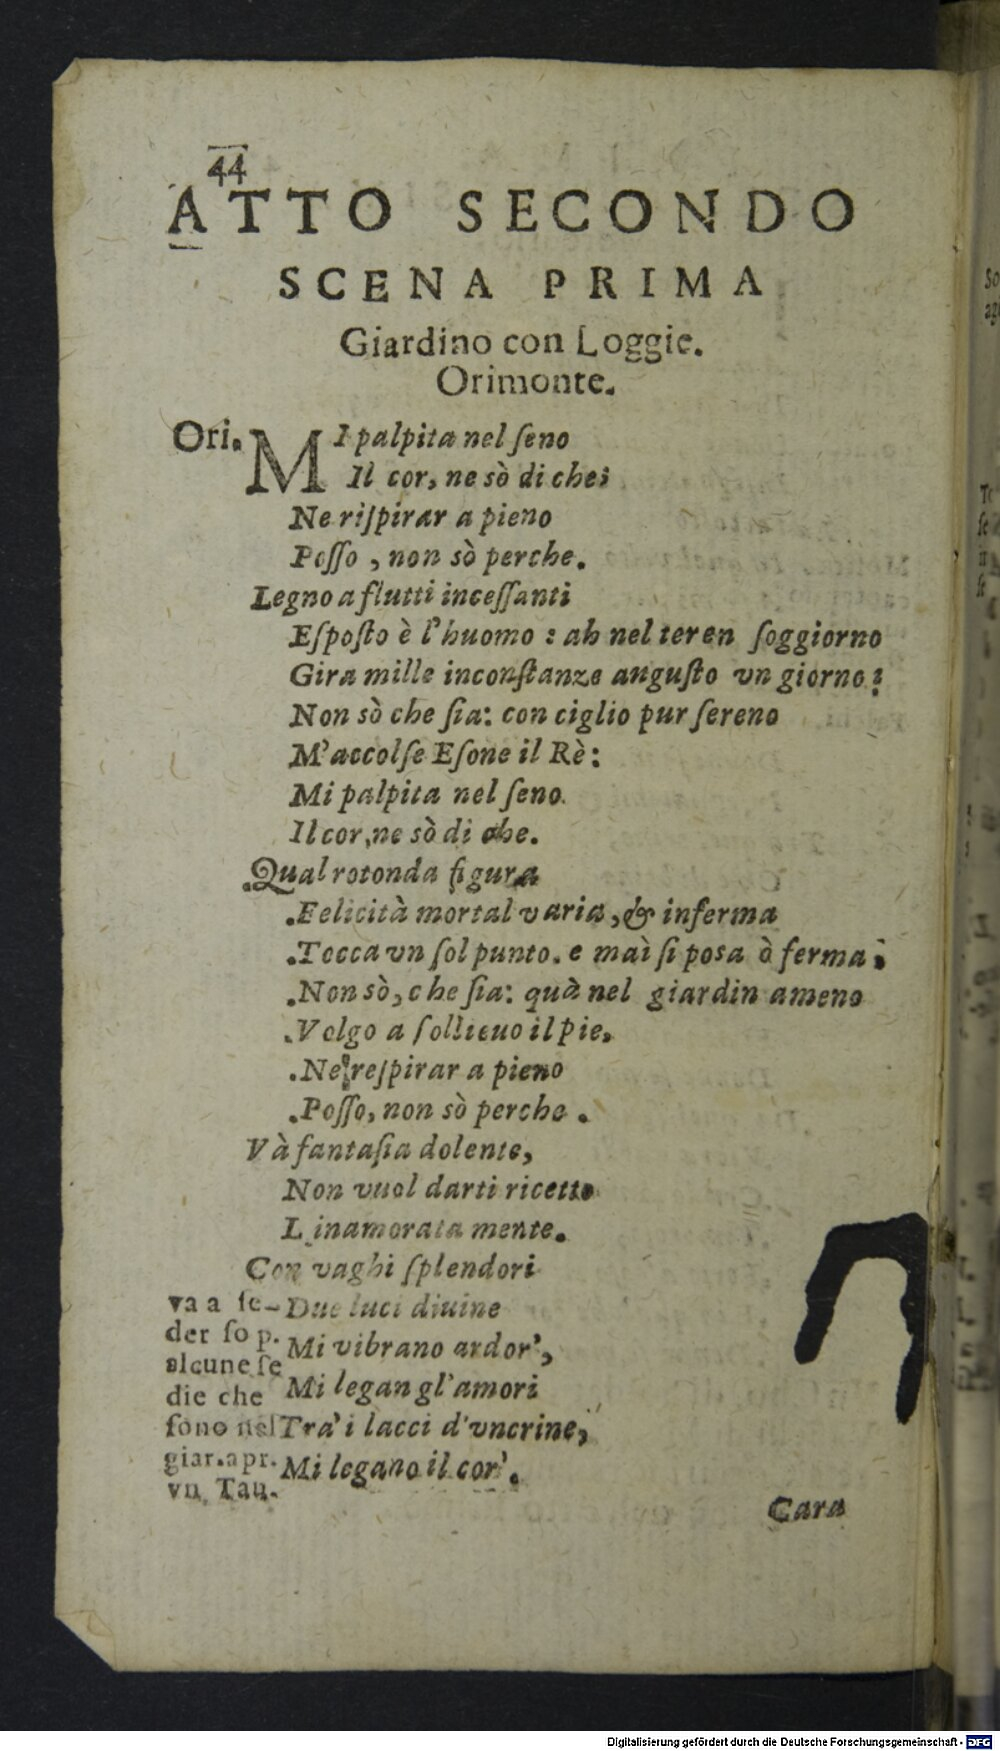 44
ATTO SECONDO
SCENA PRIMA
Giardino con Loggie.
Orimonte.
Ori. MI palpita nel ſeno
Il cor, ne sò di che;
Ne riſpirar a pieno
Poſſo, non sò perche.
Legno a flutti inceſſanti
Eſpoſto è l'huomo : ah nel teren ſoggiorno
Gira mille inconſtanze anguſto vn giorno;
Non sò che ſia: con ciglio pur ſereno
M'accolſe Eſone il Rè:
Mi palpita nel ſeno
Il cor, ne sò di che.
Qual rotonda figura
Felicità mortal varia, & inferma
Tocca vn ſol punto. e maì ſi posa ò ferma;
Non sò, che ſia: quà nel giardin ameno
Volgo a ſollieuo il pie,
Ne reſpirar a pieno
Poſſo, non sò perche.
Và fantaſia dolente,
Non vuol darti ricetto
L inamorata mente.
Con vaghi ſplendori
Due luci diuine
Mi vibrano ardor',
Mi legan gl'amori
Tra' i lacci d'vn crine,
Mi legano il cor'.
va a ſe-
der ſo p.
alcune ſe
die che
ſono nel
giar. apr.
vn Tau.
Cara
Digitalisierung gefördert durch die Deutsche Forschungsgemeinschaft - DFG